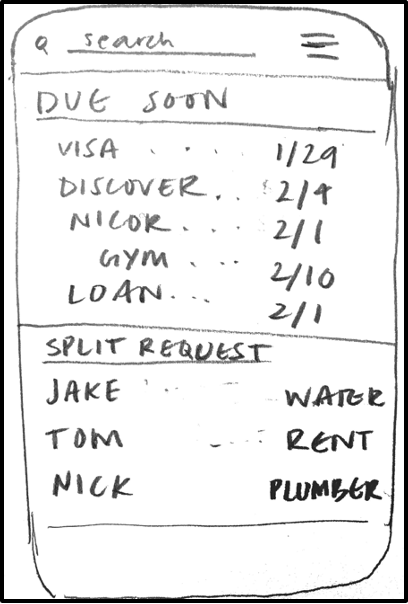 search
DUE SOON
VISA . . . 1/29
DISCOVER . . 2/4
NICOR . . . 2/1
GYM . . . 2/10
LOAN . . . 2/1
SPLIT REQUEST
JAKE . . . WATER
TOM . . . RENT
NICK PLUMBER